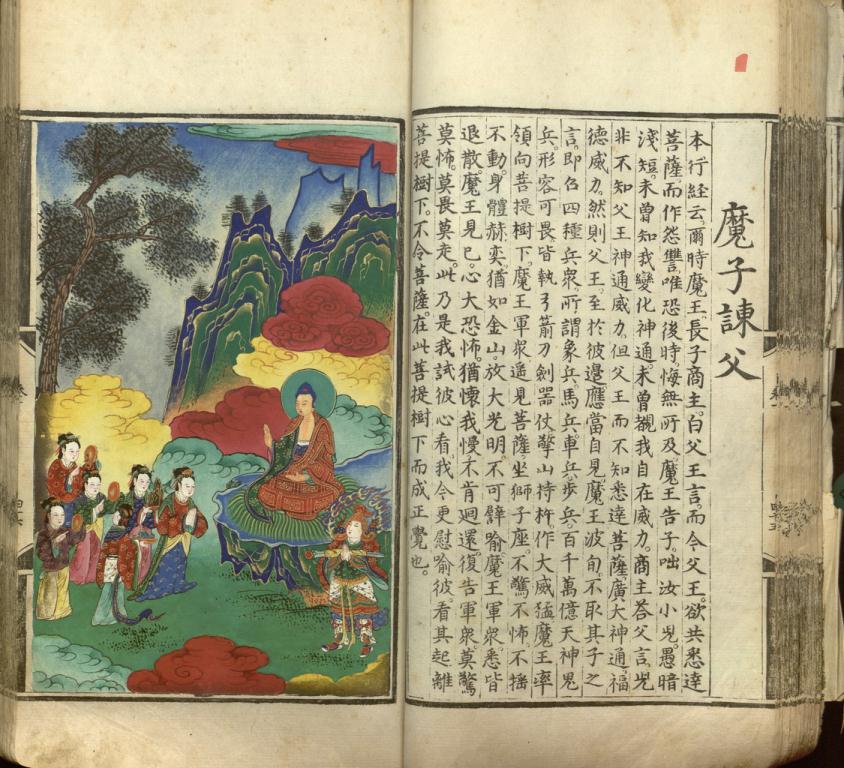 魔子諫父
本行經云。爾時魔王長子商主。白父王言。而今父王。欲共悉達
菩薩。而作怨讐。唯恐後時。悔無所及。魔王告子。咄汝小兒。愚暗
淺短。未曾知我變化神通。未曾覩我自在威力。商主答父言。兒
非不知父王神通威力。但父王而不知悉達菩薩廣大神通福
德威力。然則父王。至於彼邊。應當自見。魔王波旬。不取其子之
言。即召四種兵衆。所謂象兵。馬兵。車兵。步兵。百千萬億天神鬼
兵。形容可畏。皆執弓箭刀劍器仗。擎山持杵。作大威猛。魔王率
領向菩提樹下。魔王軍衆。遙見菩薩。坐獅子座。不驚不怖不搖
不動。身體赫奕。猶如金山。放大光明。不可譬喻。魔王軍衆。悉皆
退散。魔王見已。心大恐怖。猶懷我慢。不肯迴還。復告軍衆。莫驚
莫怖。莫畏莫走。此乃是我試彼心看。我今更慰喻彼。看其起離
菩提樹下。不令菩薩。在此菩提樹下而成正覺也。